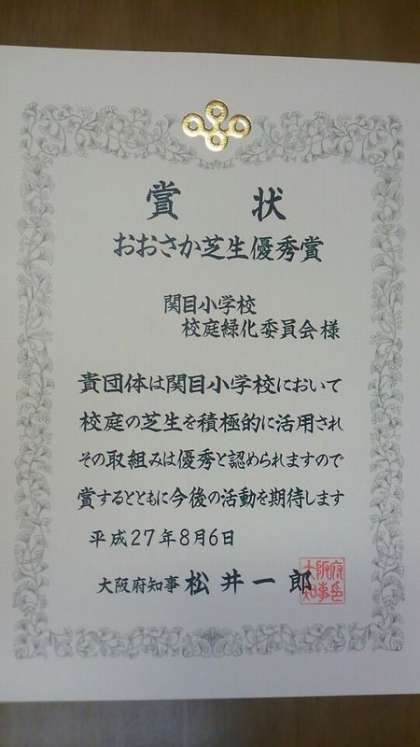 賞状
おおさか芝生優秀賞
関目小学校
校庭緑化委員会様
貴団体は関目小学校において
校庭の芝生を積極的に活用され
その取組みは優秀と認められますので
賞するとともに今後の活動を期待します
平成27年8月6日
大阪府知事 松井一郎
大阪府知事之印